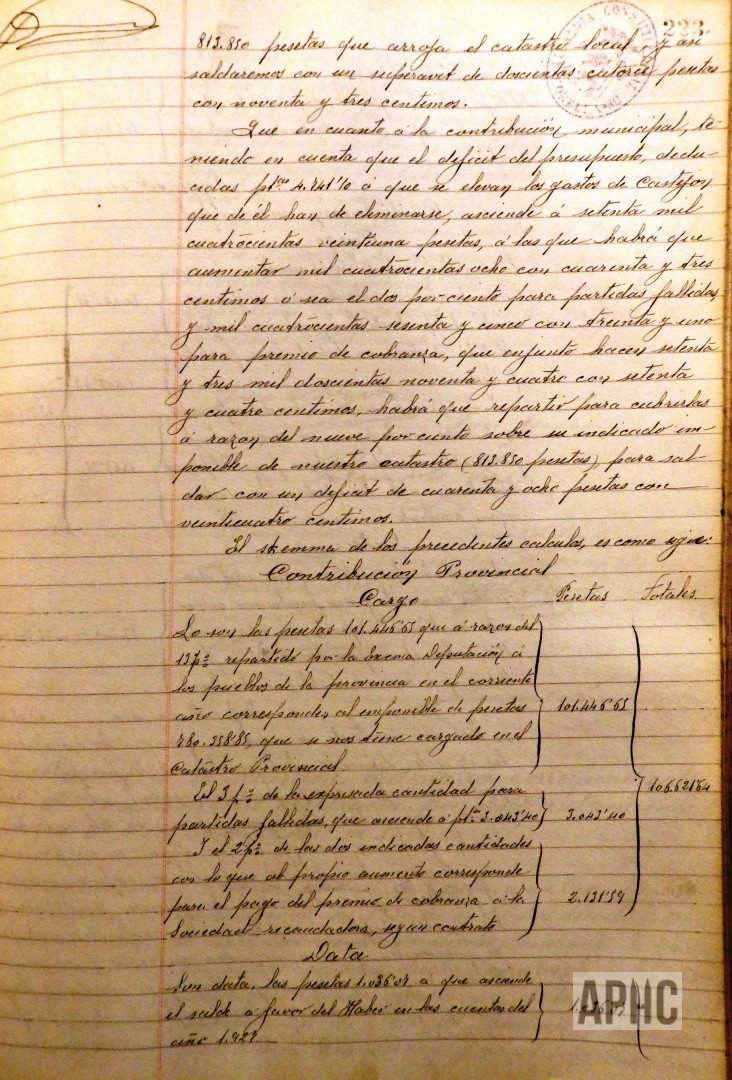 223
813.850 pesetas que arroja el catastro local, y asi
saldaremos con un superavit de doscientas catorce pesetas
con noventa y tres centimos.
Que en cuanto á la contribución municipal, te-
niendo en cuenta que el deficit del presupuesto, dedu-
cidas ptas 4.741'10 á que se elevan los gastos de Castejon
que de él han de eliminarse, asciende á setenta mil
cuatrocientas veintiuna pesetas, á las que habrá que
aumentar mil cuatrocientas ocho con cuarenta y tres
centimos ó sea el dos por ciento para partidas fallidas
y mil cuatrocientas sesenta y cinco con treinta y uno
para premio de cobranza, que enjunto hacen setenta
y tres mil doscientas noventa y cuatro con setenta
y cuatro centimos, habrá que repartir para cubrirlas
á razon del nueve por ciento sobre su indicado im-
ponible de nuestro catastro (813.850 pesetas) para sal-
dar con un deficit de cuarenta y ocho pesetas con
veinticuatro centimos.
El skemma de los precedentes calculos, es como sigue:
Contribución Provincial
Cargo Pesetas Totales
Lo son las pesetas 101.446'65 que á razon del
13 p% repartido por la Excma Deputación á
los pueblos de la provincia en el corriente
año corresponden al imponible de pesetas
780.358'85, que se nos tiene cargado en el
Catastro Provincial 101.446'65
El 3 p% de la expresada cantidad para
partidas fallidas, que asciende á ptas 3.043'40 3.043'40
I el 2 p% de las dos indicadas cantidades
con lo que al propio aumento corresponde
para el pago del premio de cobranza á la
Sociedad recaudadora, segun contrato 2.131'59
106.621'64
Data
Son data, las pesetas 1.036'07 á que asciende
el saldo á favor del Haber en las cuentas del
año 1.927 1.036'07
APHC